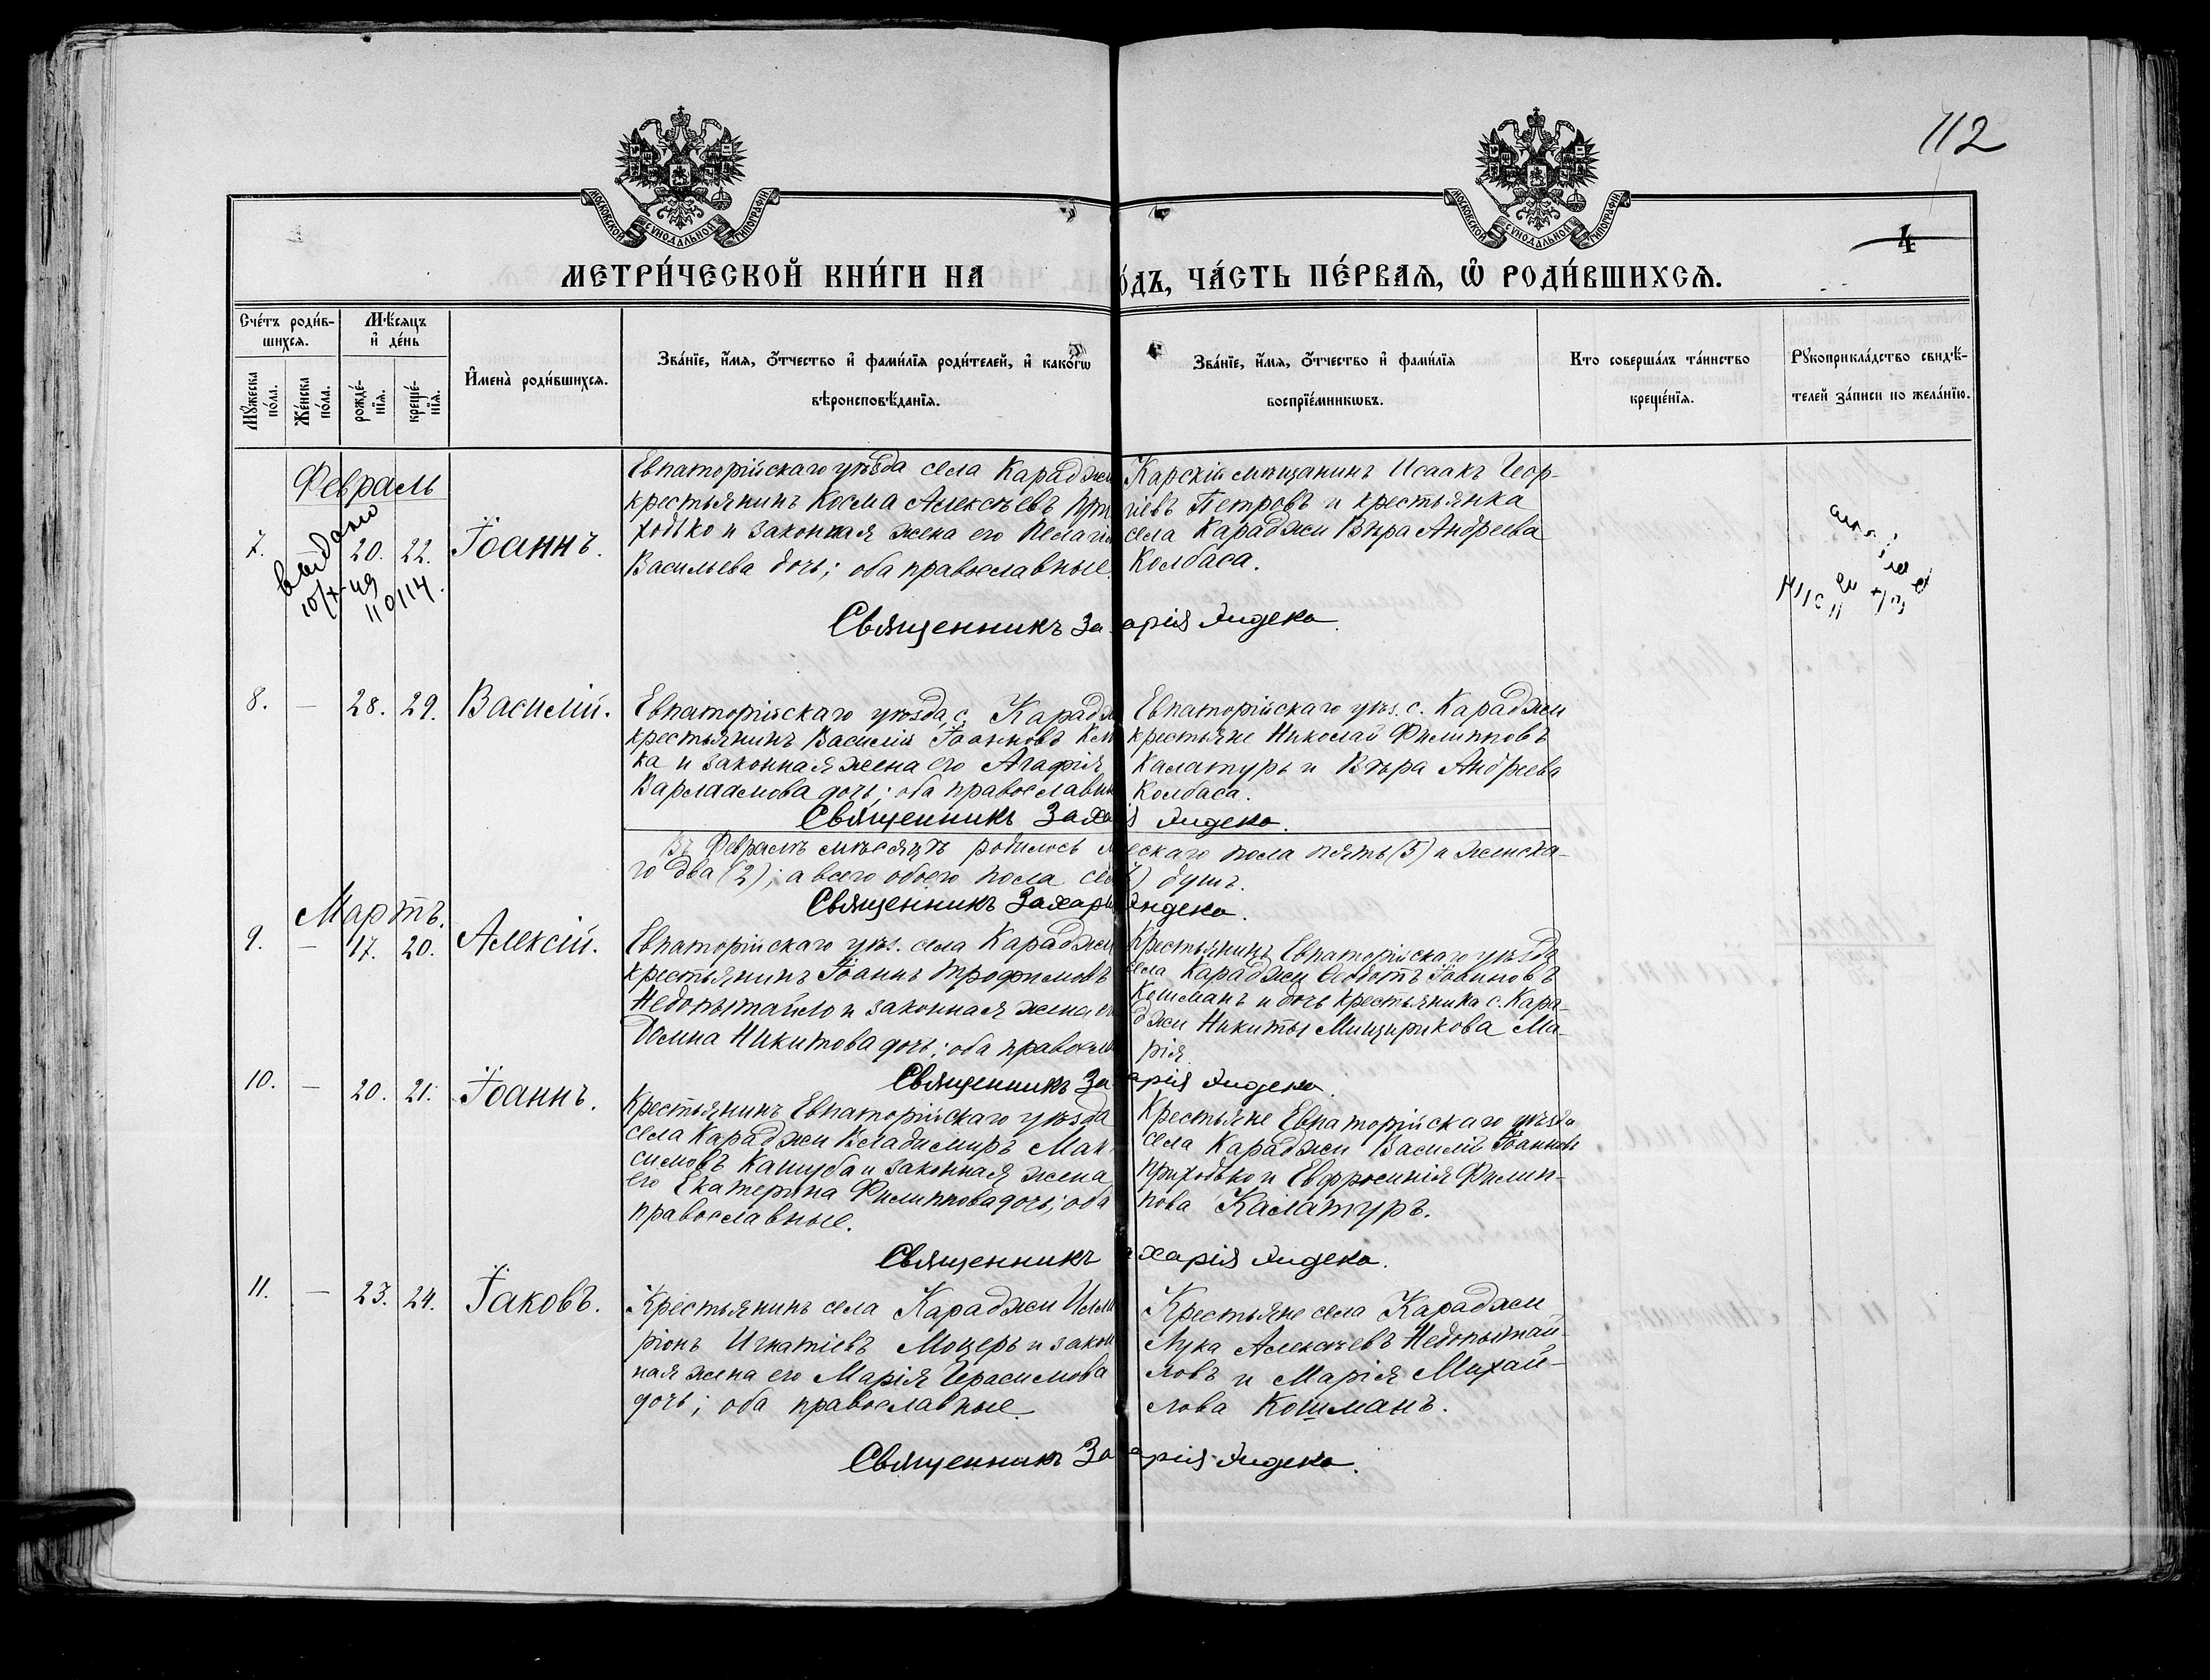 112
4
МОСКОВСКОЙ СѴНОДАЛЬНОЙ ТИПОГРАФІИ
МОСКОВСКОЙ СѴНОДАЛЬНОЙ ТИПОГРАФІИ
МЕТРИ́ЧЕСКОЙ КНИ́ГИ НА
О́ДЪ, ЧА́СТЬ ПЕ́РВАѦ, Ѡ҆ РОДИ́ВШИХСѦ.
Сче́тъ роди́в-
шихсѧ.
Мѣ́сяцъ
и҆ де́нь
Мꙋ́жеска по́ла.
Же́нска по́ла.
рожде́-
нїѧ.
креще́-
нїѧ.
И҆мена̀ роди́вшихсѧ.
Зва́нїе, и҆́мѧ, ѻ҆́тчество и҆ фами́лїѧ роди́телей, и҆ како́гѡ
вѣроисповѣ́данїѧ.
Зва́нїе, и҆́мѧ, ѻ҆́тчество и҆ фами́лїѧ
воспрїе́мникѡвъ.
Кто соверша́лъ та́инство
креще́нїѧ.
Рꙋкоприкла́дство свидѣ́-
телей за́писи по жела́нїю.
Февраль
7.
выдано
10/X-49
110114.
20. 22. Іоаннъ.
Евпаторійскаго уѣзда села Караджи
крестьянинъ Косма Алексѣевъ При
ходько и законная жена его Пелагія
Васильева дочь; оба православные.
Карскій мѣщанинъ Исаакъ Геор-
гіевъ Петровъ и крестьянка
села Караджи Вѣра Андреева
Колбаса.
Священникъ За арія Яндека.
8. — 28. 29. Василій.
Евпаторійскаго уѣзда, с. Карадж
крестьянинъ Василій Іоанновъ
ка и законная жена его Агафія
Варлаамова дочь; оба православн
Евпаторійскаго уѣз. с. Караджи
крестьяне Николай Филипповъ
Калатуръ и Вѣра Андреева
Колбаса.
Священникъ Заха я Яндека.
Въ Февралѣ мѣсяцѣ родилось м ескаго пола пять (5) и женска-
го два (2); а всего обоего пола се ) душъ.
Священникъ Захарі Яндека.
Мартъ.
9. — 17. 20. Алексій.
Евпаторійскаго уѣз. села Караджи
крестьянинъ Іоаннъ Трофимовъ
Недопытайло и законная жена е
Домна Никитова дочь; оба правосла
Крестьянинъ Евпаторійскаго уѣзда
села Караджи Ѳеодотъ
Кошманъ и дочь крестьянина с. Кара-
джи Никиты Мищирикова Ма-
рія.
Священникъ За арія Яндека.
10. — 20. 21. Іоаннъ.
Крестьянинъ Евпаторійскаго уѣзда
села Караджи Владимиръ Мак-
симовъ Кашуба и законная жена
его Екатерина Филиппова дочь; оба
православные.
Крестьяне Евпаторійскаго уѣзда
села Караджи Василій Іоанновъ
Приходько и Евфросинія Филип-
пова Калатуръ.
Священникъ ахарія Яндека.
11. — 23. 24. Іаковъ.
Крестьянинъ села Караджи Илла
ріонъ Игнатіевъ Моцеръ и закон
ная жена его Марія Герасимова
дочь; оба православные.
Крестьяне села Караджи
Лука Алексѣевъ Недопытай-
ловъ и Марія Михай-
лова Кошманъ.
Священникъ За арія Яндека.